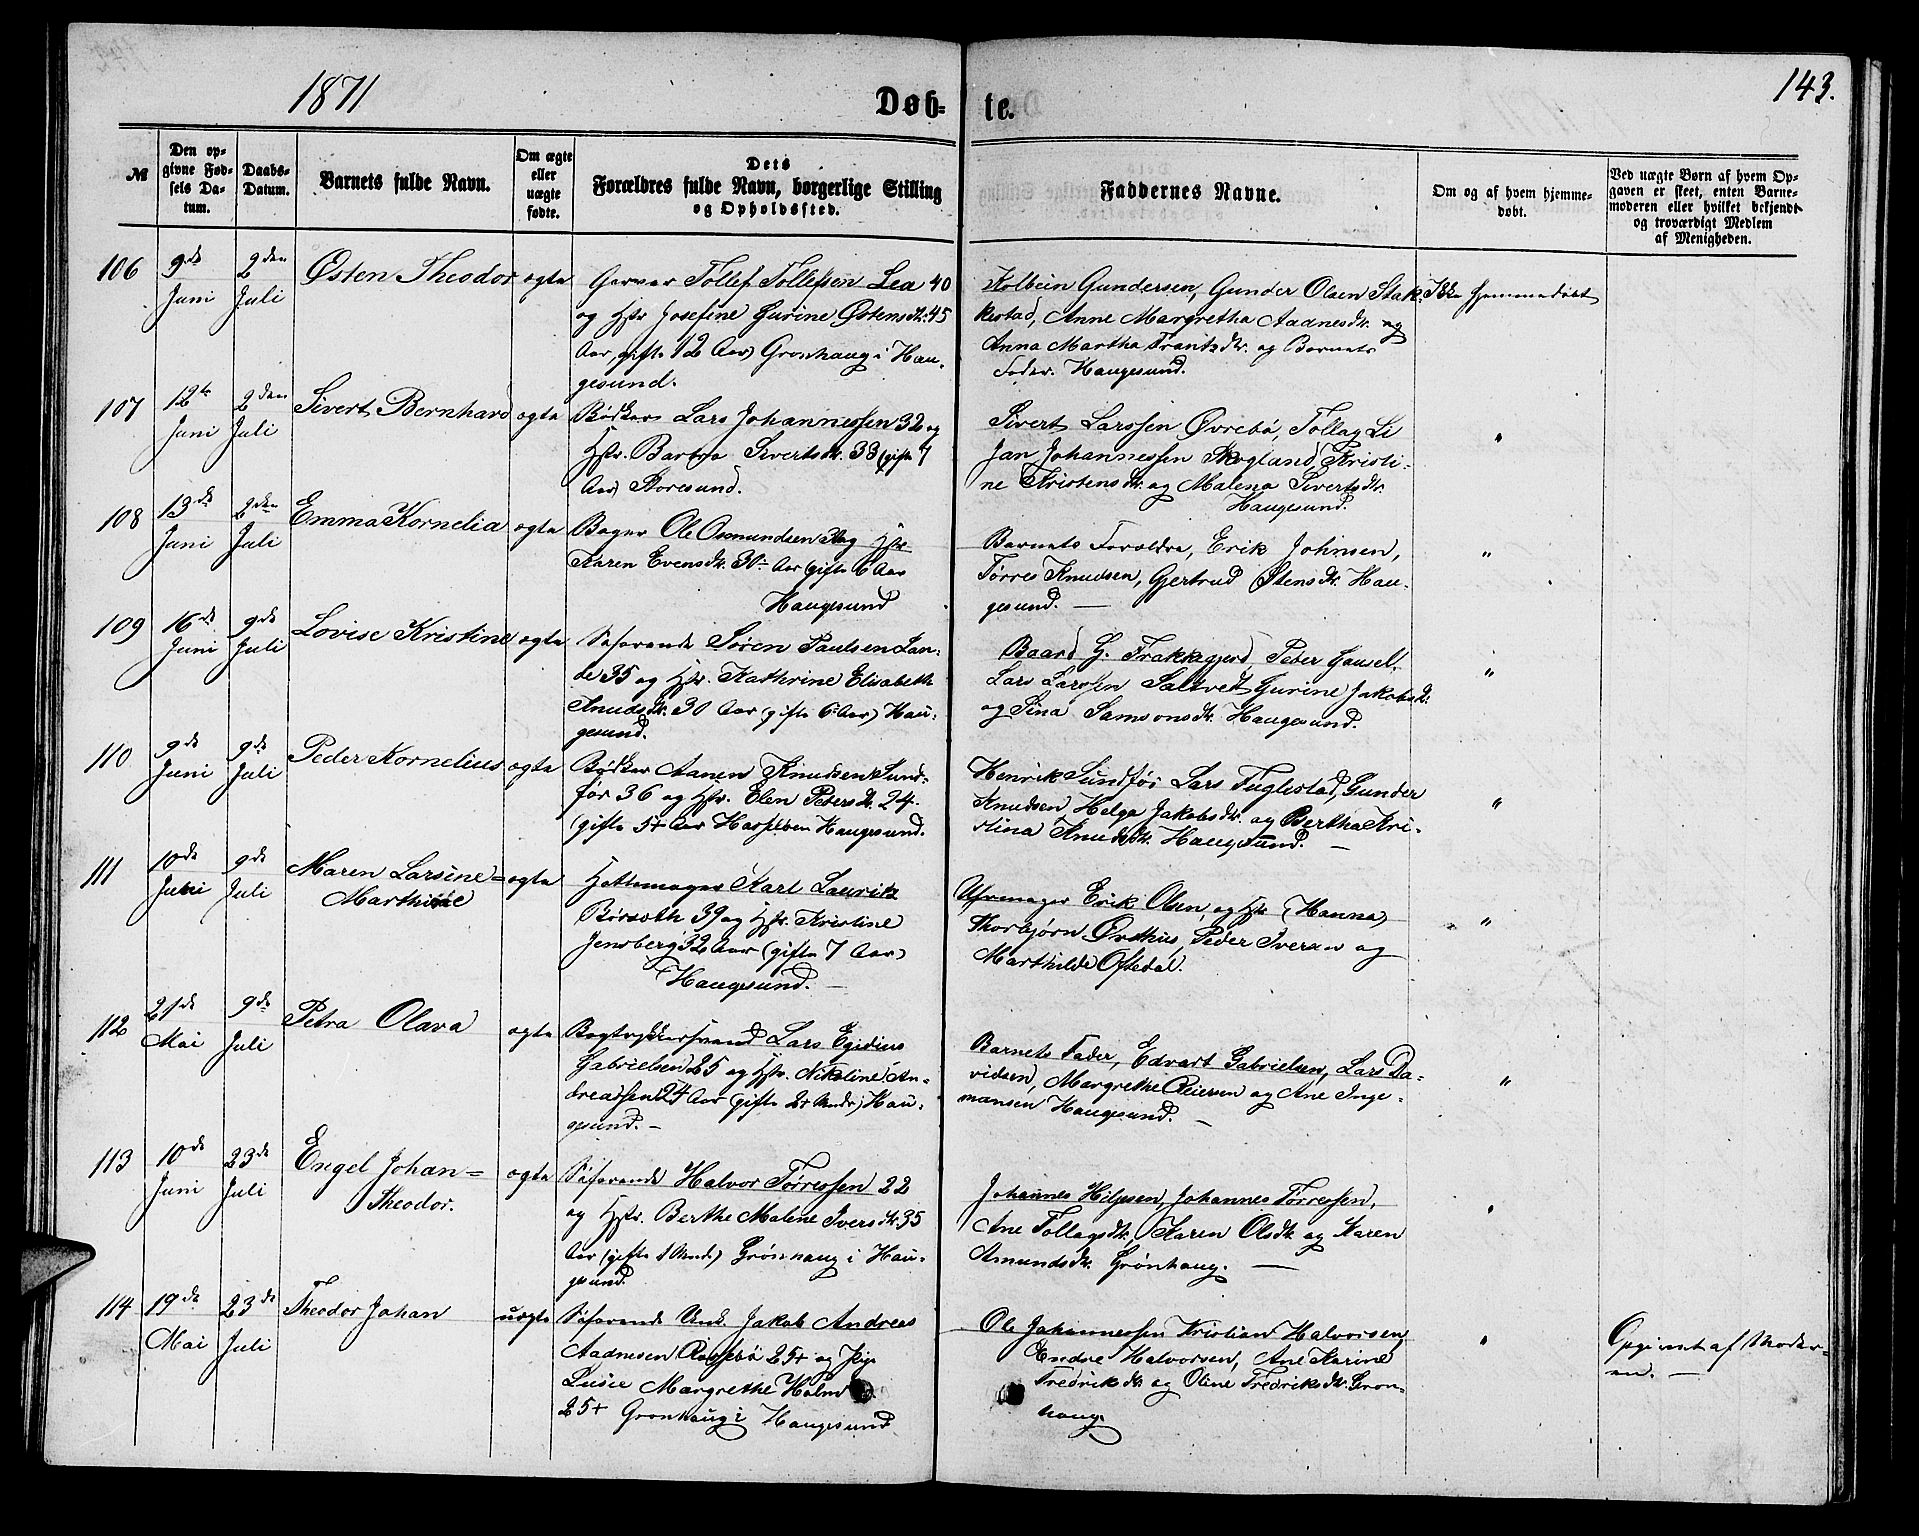 1871
Døb-
te.
143.
№
Den op-
givne Fød-
sels Da-
tum.
Daabs-
Datum.
Barnets fulde Navn.
Om ægte
eller
uægte
fødte.
Dets
Forældres fulde Navn, borgerlige Stilling
og Opholdssted.
Faddernes Navne.
Om og af hvem hjemme-
døbt.
Ved uægte Børn af hvem Op-
gaven er skeet, enten Barne-
moderen eller hvilket bekjendt
og troværdigt Medlem
af Menigheden.
106 9de Juni 2den Juli Østen Theodor ægte
Garver Tollef Tollefsen Lea 40
og Hstr. Josefine Gurine Østensdtr. 45
Aar, gifte 12 Aar) Grønhaug i Hau-
gesund.
Kolbein Gundersen, Gunder Olsen Stak-
kestad, Anne Margretha Aadnesdtr. og
Anna Martha Frantzdtr. og Barnets
Fader. Haugesund.
Ikke hjemmedøbt
107 12te Juni 2den Juli Sivert Bernhard ægte
Bødker Lars Johannessen 32 og
Hstr. Barbra Sivertsdtr. 33 (gifte 7
Aar) Storesund.
Sivert Larssen Øvrebø, Tollag Li
Jan Johannessen Skogland, Kristi-
ne Kristensdtr. og Malena Sivertsdtr.
Haugesund.
"
108 13de Juni 2den Juli Emma Kornelia ægte
Bager Ole Osmundsen og Hstr
Karen Evensdtr. 30 Aar (gifte 6 Aar
Haugesund
Barnets Forældre, Erik Johnsen,
Tørres Knudsen, Gjertrud Stensdtr. Hau-
gesund. —
"
109 16de Juni 9de Juli Lovise Kristine ægte
Søfarende Søren Paulsen Lan-
de 35 og Hstr. Kathrine Elisabeth
Knudsdtr. 30 Aar (gifte 6 Aar) Hau-
gesund.
Baard G. Frakkagjerd, Peder Gausel,
Lars Larssen Saltvedt Gurine Jakobsdtr.
og Sina Samsonsdtr. Haugesund.
"
110 9de Juni 9de Juli Peder Kornelius ægte
Bødker Aanen Knudsen Sund-
før 36 og Hstr. Elen Petersdtr. 24
(gifte 5+ Aar Hasseløen Haugesund.
Henrik Sundfør Lars Fuglestad, Gunder
Knudsen, Helga Jakobsdtr. og Bertha Kri-
stina Knudsdtr. Haugesund. —
"
111 10de Juni 9de Juli Maren Larsine- ægte
Marthine
Hattemager Karl Laurik
Børsoth 39 og Hstr. Kristine
Jensberg 32 Aar (gifte 7 Aar)
Haugesund. —
Uhrmager Erik Olsen, og Hstr (Hanna)
Thorbjørn Østhus, Peder Iversen og
Marthilde Oftedal.
"
112 21de Mai 9de Juli Petra Olava ægte
Bogtrykkersvend Lars Egidius
Gabrielsen 25 og Hstr. Nikoline An-
dreassen 24 Aar (gifte 2+ Mndr.) Hau-
gesund. —
Barnets Fader, Edvart Gabrielsen, Lars Da-
vidsen, Margrethe Reiersen og Ane Inge-
mansen Haugesund. —
"
113 10de Juni 23de Juli Engel Johan- ægte
Theodor.
Søfarende Halvor Tørressen 22
og Hstr. Berthe Malene Iversdtr. 35
Aar (gifte 1 Mnd.) Grønhaug i Hau-
gesund
Johannes Hilgesen, Johannes Tørressen,
Ane Tollagsdtr., Karen Olsdtr. og Karen
Amundsdtr. Grønhaug. —
"
114 19de Mai 23de Juli Theodor Johan uægte
Søfarende Unk. Jakob Andreas
Aadnesen Røssebø 25+ og Pige
Lusie Margrethe Holm
25+ Grønhaug i Haugesund
Ole Johannessen Kristian Halvorsen,
Endre Halvorsen, Ane Karine
Fredriksdtr. og Oline Fredriksdtr. Grøn-
haug.
"
Opgivet af Moder-
en. —